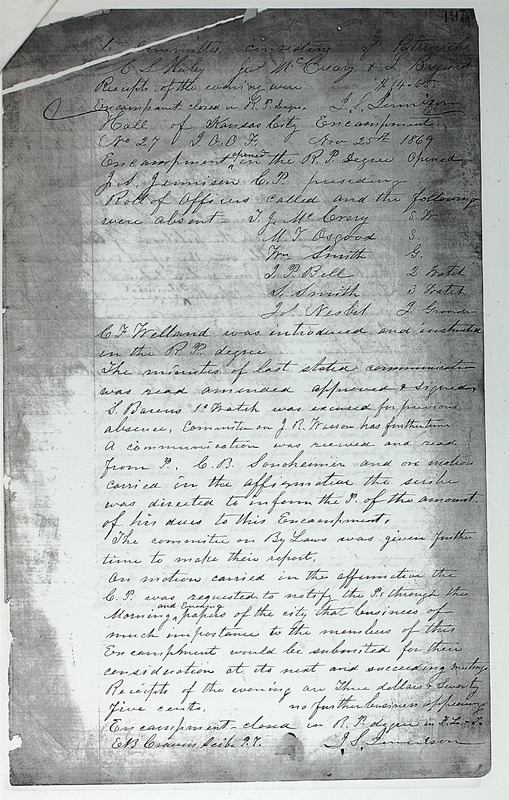 197
to committee consisting of Patriarchs
C. S. Haley Jas McCreary & S Bryant
Receipts of the evening were $14.65
Encampment closed in R. P. degree J. S. Jennison
Hall of Kansas City Encampment
No 27 I O O F. Nov 25th 1869
Encampment opened in the R. P. Degree Opened
J. S. Jennison C. P. presiding
Roll of Officers called and the following
were absent T. J. McCrery S W
M. T. Osgood S.
Wm Smith G.
J P. Bell 2 Watch
S. Smith 3 Watch
J. S. Nesbit
C F Welland was introduced and instructed
in the R. P. degree
The minutes of last stated communication
was read amended approved & signed
S. Barens 1st Watch was excused for previous
absence. Committee on J. R. Wasson has further time
A communication was recieved and read
from P. C. B. Soncheimer and on motion
carried in the affirmative the scribe
was directed to inform the P. of the amount
of his dues to this Encampment.
The committee on By Laws was given further
time to make their report.
On motion carried in the affirmative the
C. P. was requested to notify the Ps through the
Morning and Evening papers of the city that business of
much importance to the members of this
Encampment would be submited for their
consideration at its next and succeeding meetings
Receipts of the evening are Three dollars & Seventy
five cents. no further business appearing
Encampment closed in R. P. degree in F. L. & T.
E B Cravens Scribe P. T. J. S. Jennison